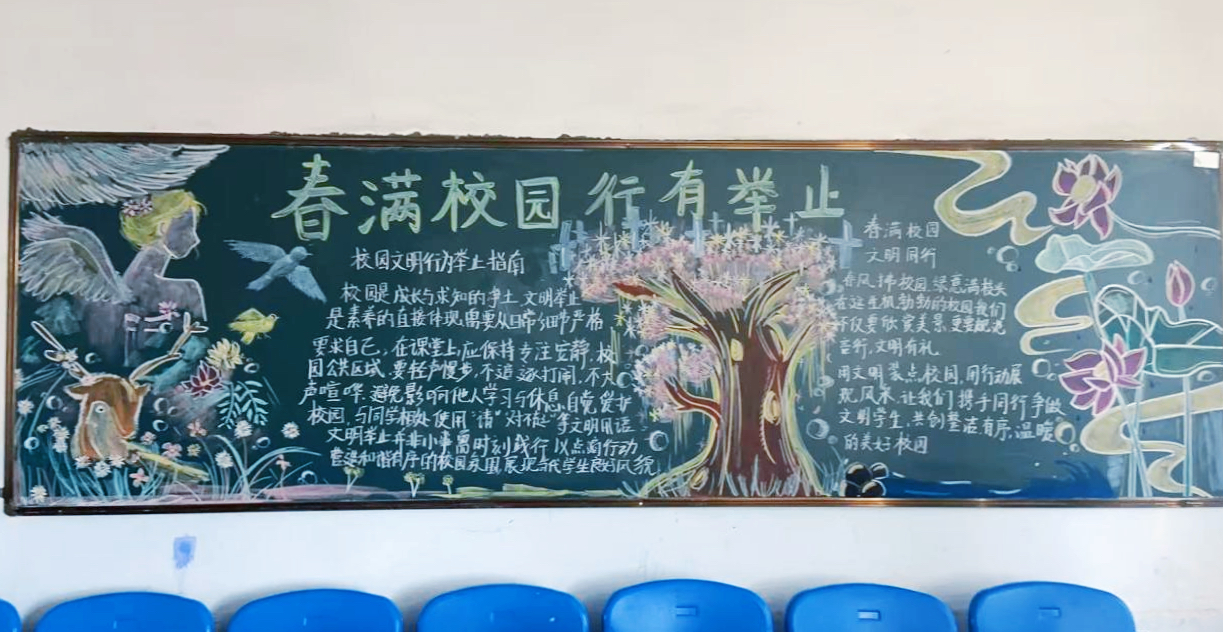 春满校园 行有举止
校园文明行为举止指南
校园是成长与求知的净土,文明举止
是素养的直接体现,需要从日常细节严格
要求自己,在课堂上,应保持专注安静,校
园公共区域,要轻声慢步,不追逐打闹,不大
声喧哗,避免影响他人学习与休息,自觉爱护
校园,与同学相处使用“请”“对不起”等文明用语
文明举止并非小事,需时刻践行,以点滴行动
营造和谐有序的校园氛围,展现当代学生良好风貌
春满校园
文明同行
春风拂校园,绿意满枝头
在这生机勃勃的校园我们
不仅要欣赏美景,更要规范
言行,文明有礼。
用文明装点校园,用行动展
现风采,让我们携手同行争做
文明学生,共创整洁有序,温暖
的美好校园